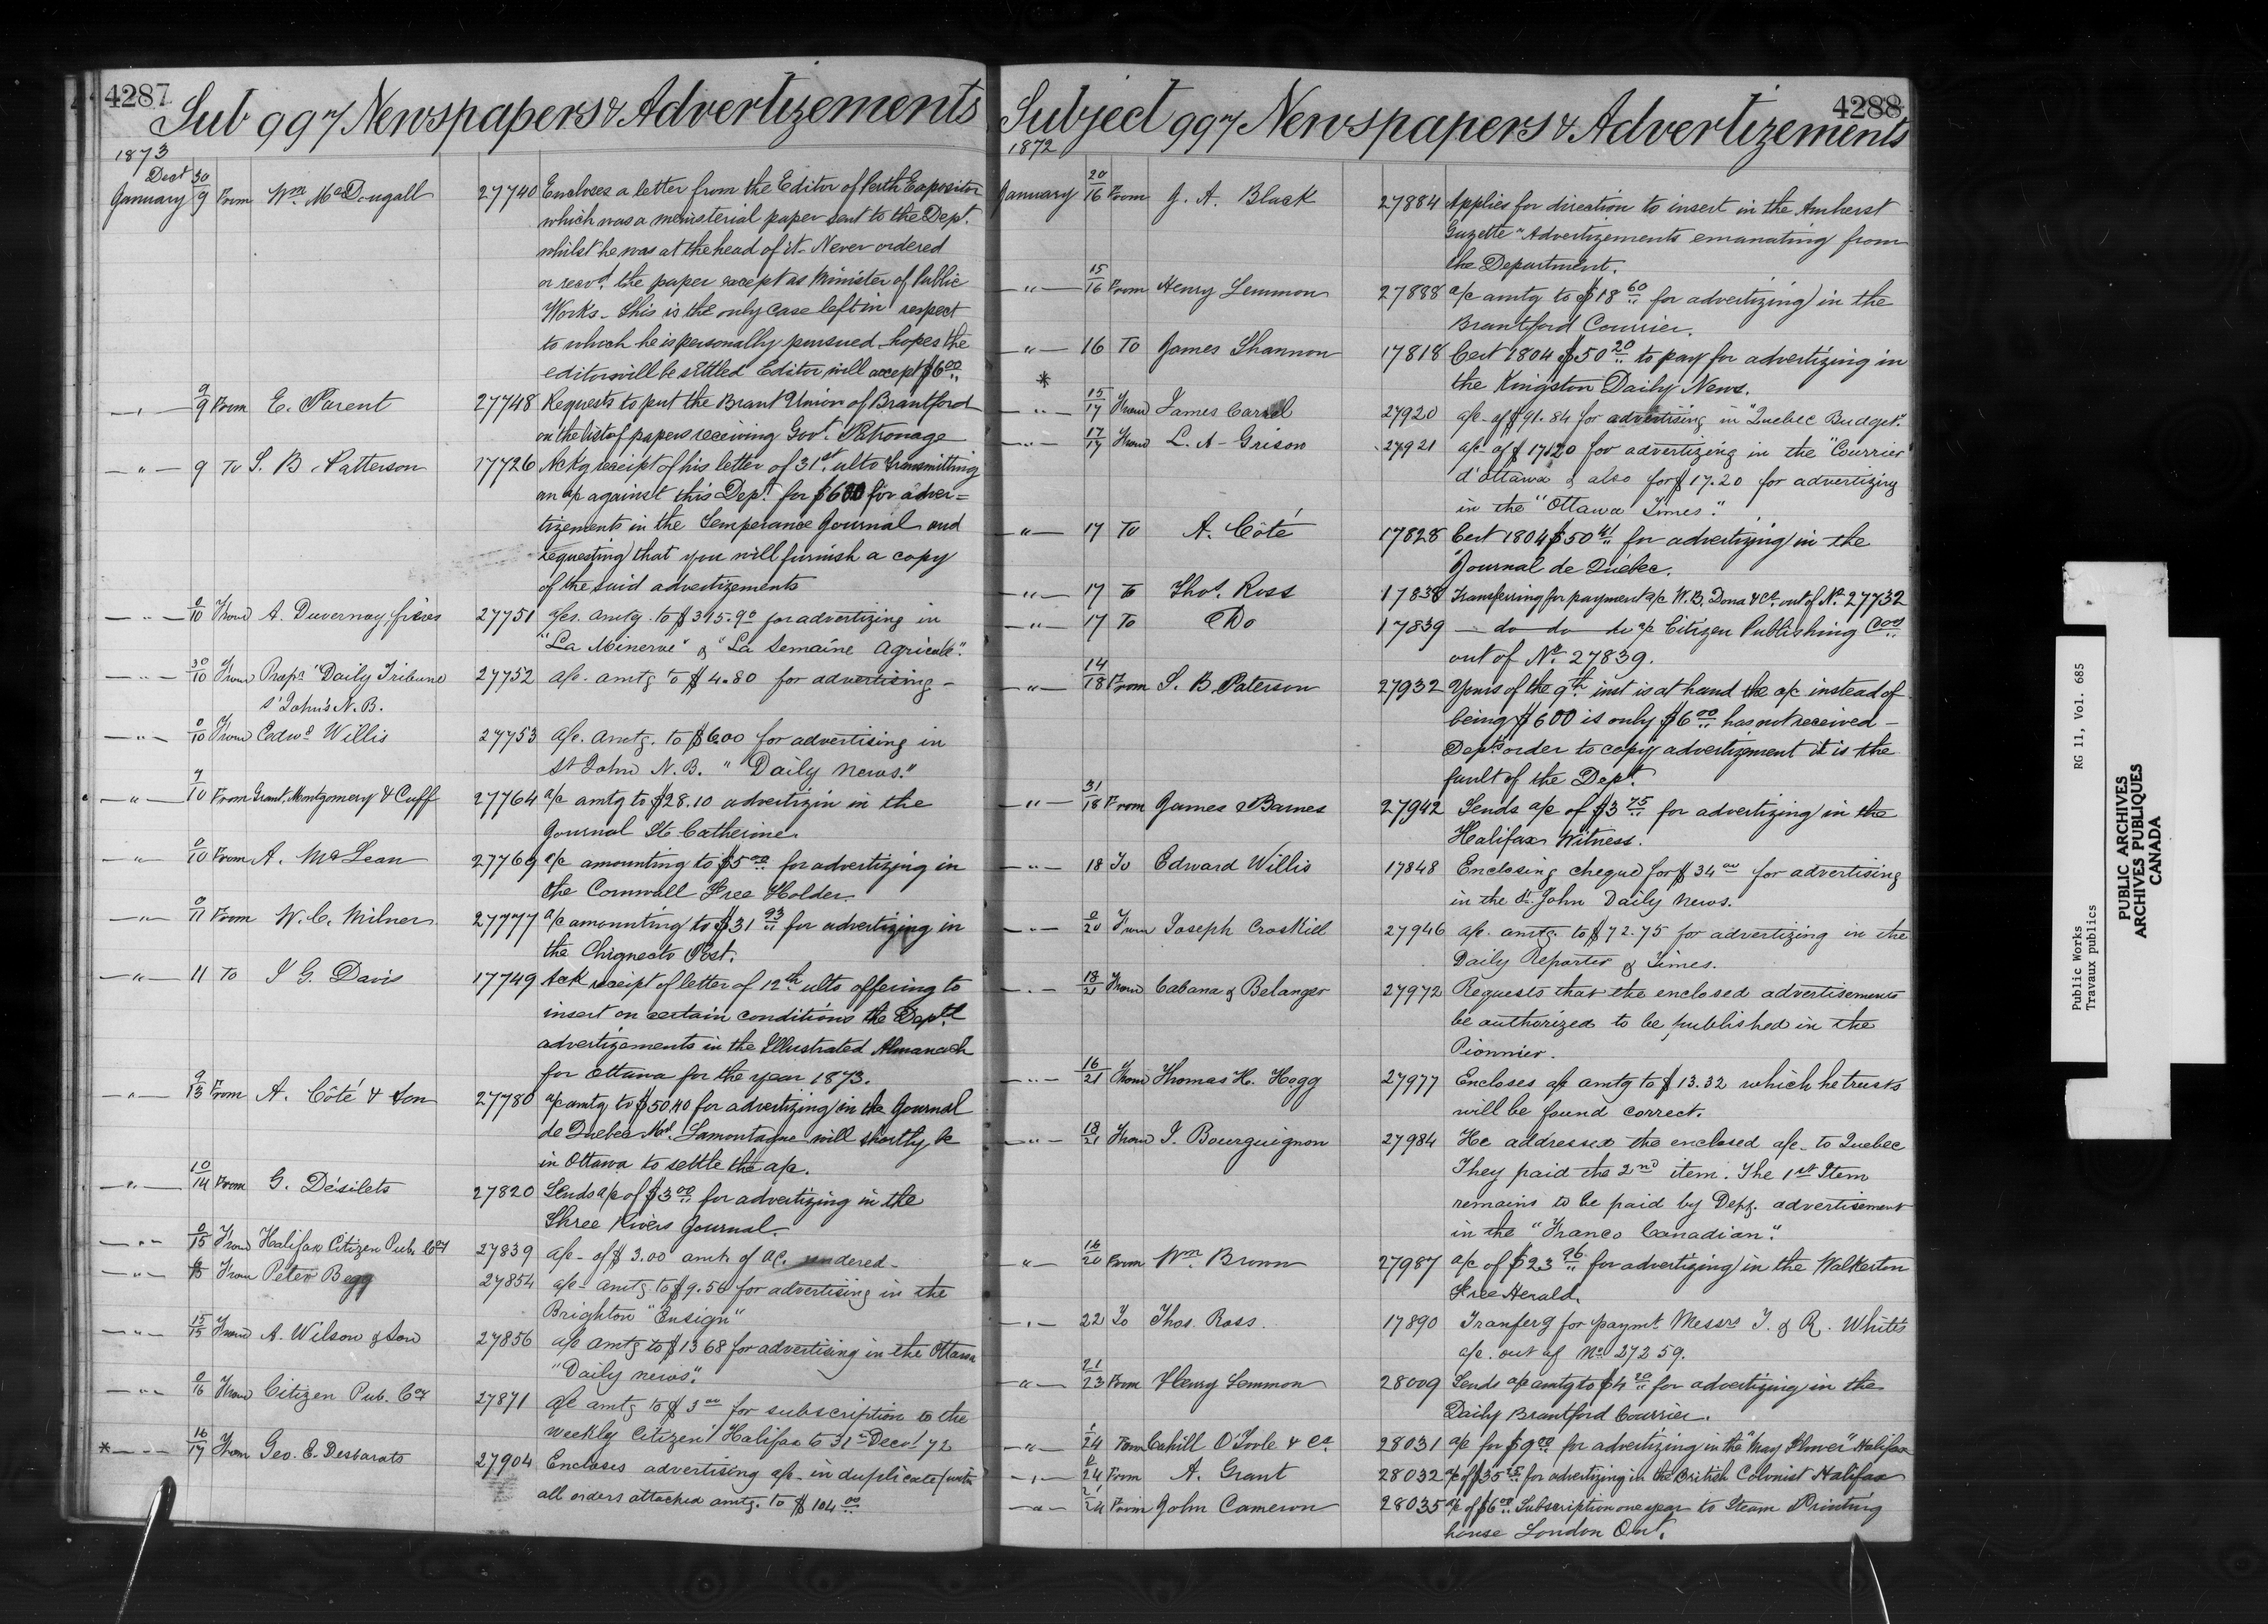 4287
Sub 997 Newspapers & Advertizements
1873
Dect 30
January 9 From Wm. McDougall 27740 Encloses a letter from the Editor of Perth Expositor
which was a ministerial paper sent to the Dept.
whilst he was at the head of it - Never ordered
or recvd. the paper except as Minister of Public
Works - This is the only case left in respect
to which he is personally pursued - hopes the
editor will be settled Editor will accept $6 00
—"— 9/9 From E. Parent 27748 Requests to put the Brant Union of Brantford
on the list of papers receiving Govt. Patronage
—"— 9 To S. B. Patterson 17726 Ackg receipt of his letter of 31st. ulto transmitting
an a/c against this Dept. for $600 for adver=
tizements in the Temperance Journal and
requesting that you will furnish a copy
of the said advertizements
—"— 0/10 From A. Duvernay, frères 27751 a/cs. amtg. to $395.90 for advertizing in
"La Minerve" & "La Semaine Agricole".
—"— 30/10 From Props "Daily Tribune 27752 a/c. amtg to $4.80 for advertising -
St John's N.B.
—"— 0/10 From Edwd Willis 27753 a/c. amtg. to $6.00 for advertising in
St John N.B. "Daily News."
—"— 7/10 From Grant, Montgomery & Cuff 27764 a/c amtg to $28.10 advertizin in the
Journal Ste Catherine
—"— 0/10 From A. McLean 27769 a/c amounting to $5 00 for advertizing in
the Cornwall Free Holder
—"— 0/11 From W. C. Milner 27777 a/c amounting to $31 93 for advertizing in
the Chignecto Post.
—"— 11 To J G. Davis 17749 Ack receipt of letter of 12th. ulto offering to
insert on certain conditions the Deptl
advertizements in the Illustrated Almanach
for Ottawa for the year 1873.
—"— 9/13 From A. Côté & Son 27780 a/c amtg to $50.40 for advertizing in the Journal
de Quebec Mr. Lamontagne will shortly be
in Ottawa to settle the a/c.
—"— 10/14 From G. Désilets 27820 Sends a/c of $3 00 for advertizing in the
Three Rivers Journal.
—"— 0/15 From Halifax Citizen Pub. Coy 27839 a/c - of $3.00 amt. of ac. rendered -
—"— 0/15 From Peter Begg 27854 a/c - amtg. to $9.50 for advertising in the
Brighton "Ensign"
—"— 15/15 From A. Wilson & Son 27856 a/c amtg to $13 68 for advertising in the Ottawa
"Daily News".
—"— 0/16 From Citizen Pub. Coy 27871 a/c amtg to $3 00 for subscription to the
weekly Citizen Halifax to 31st Decr. 72
*—"— 16/17 From Geo. E. Desbarats 27904 Encloses advertising a/c - in duplicate (with
all orders attached amtg. to $104 00
4288
Subject 997 Newspapers & Advertizements
1872
January 20/16 From J. A. Black 27884 Applies for direction to insert in the Amherst
Gazette "Advertizements emanating from
the Department.
—"— 15/16 From Henry Lemmon 27888 a/c amtg to $18 60 for advertizing in the
Brantford Courrier.
—"— 16 To James Shannon 17818 Cert 1804 $50 20 to pay for advertizing in
the Kingston Daily News.
*
—"— 15/17 From James Carrel 27920 a/c - of $91.84 for advertising in "Quebec Budget".
—"— 17/17 From L. A - Grison 27921 a/c - of $17.20 for advertizing in the "Courrier
d'Ottawa & also for $17.20 for advertizing
in the "Ottawa Times".
—"— 17 To A. Côté 17828 Cert 1804 $50 41 for advertizing in the
Journal de Québec.
—"— 17 To Thos. Ross 17838 Transferring for payment a/c W. B. Dona & Co. out of No. 27732
—"— 17 To Do 17839 — do do do a/c Citizen Publishing Coy
out of No. 27839.
—"— 14/18 From S. B. Paterson 27932 Yours of the 9th. inst is at hand the a/c instead of
being $600 is only $6 00 has not received -
Depts order to copy advertizement it is the
fault of the Dept.
—"— 31/18 From James Barnes 27942 Sends a/c of $3 75 for advertizing in the
Halifax Witness.
—"— 18 To Edward Willis 17848 Enclosing cheque for $34 00 for advertising
in the St. John Daily News.
—"— 0/20 From Joseph Croskill 27946 a/c. amtg. to $72.75 for advertizing in the
Daily Reporter & Times.
—"— 18/21 From Cabana & Belanger 27972 Requests that the enclosed advertisements
be authorized to be published in the
Pionnier.
—"— 16/21 From Thomas H. Hogg 27977 Encloses a/c amtg to $13.32 which he trusts
will be found correct.
—"— 18/21 From J. Bourguignon 27984 He addressed the enclosed a/c - to Quebec
They paid the 2nd item. The 1st Item
remains to be paid by Dept. advertisement
in the "Franco Canadian".
—"— 16/20 From Wm. Brown 27987 a/c of $23 96 for advertizing in the Walkerton
Free Herald.
—"— 22 To Thos. Ross. 17890 Tranferg for paymt. Messrs J. & R. White's
a/c. out of No. 27259.
—"— 21/23 From Henry Lemmon 28009 Sends a/c amtg to $4 20 for advertizing in the
Daily Brantford Courrier.
—"— 0/24 From Cahill O'Toole & Co. 28031 a/c for $9 00 for advertizing in the "May Flower" Halifax
—"— 0/24 From A. Grant 28032 a/c of $35 25 for advertizing in the British Colonist Halifax
—"— 21/24 From John Cameron 28035 a/c of $6 00 Subscription one year to Steam Printing
house London Ont.
Public Works RG 11, Vol. 685
Travaux publics
PUBLIC ARCHIVES
ARCHIVES PUBLIQUES
CANADA